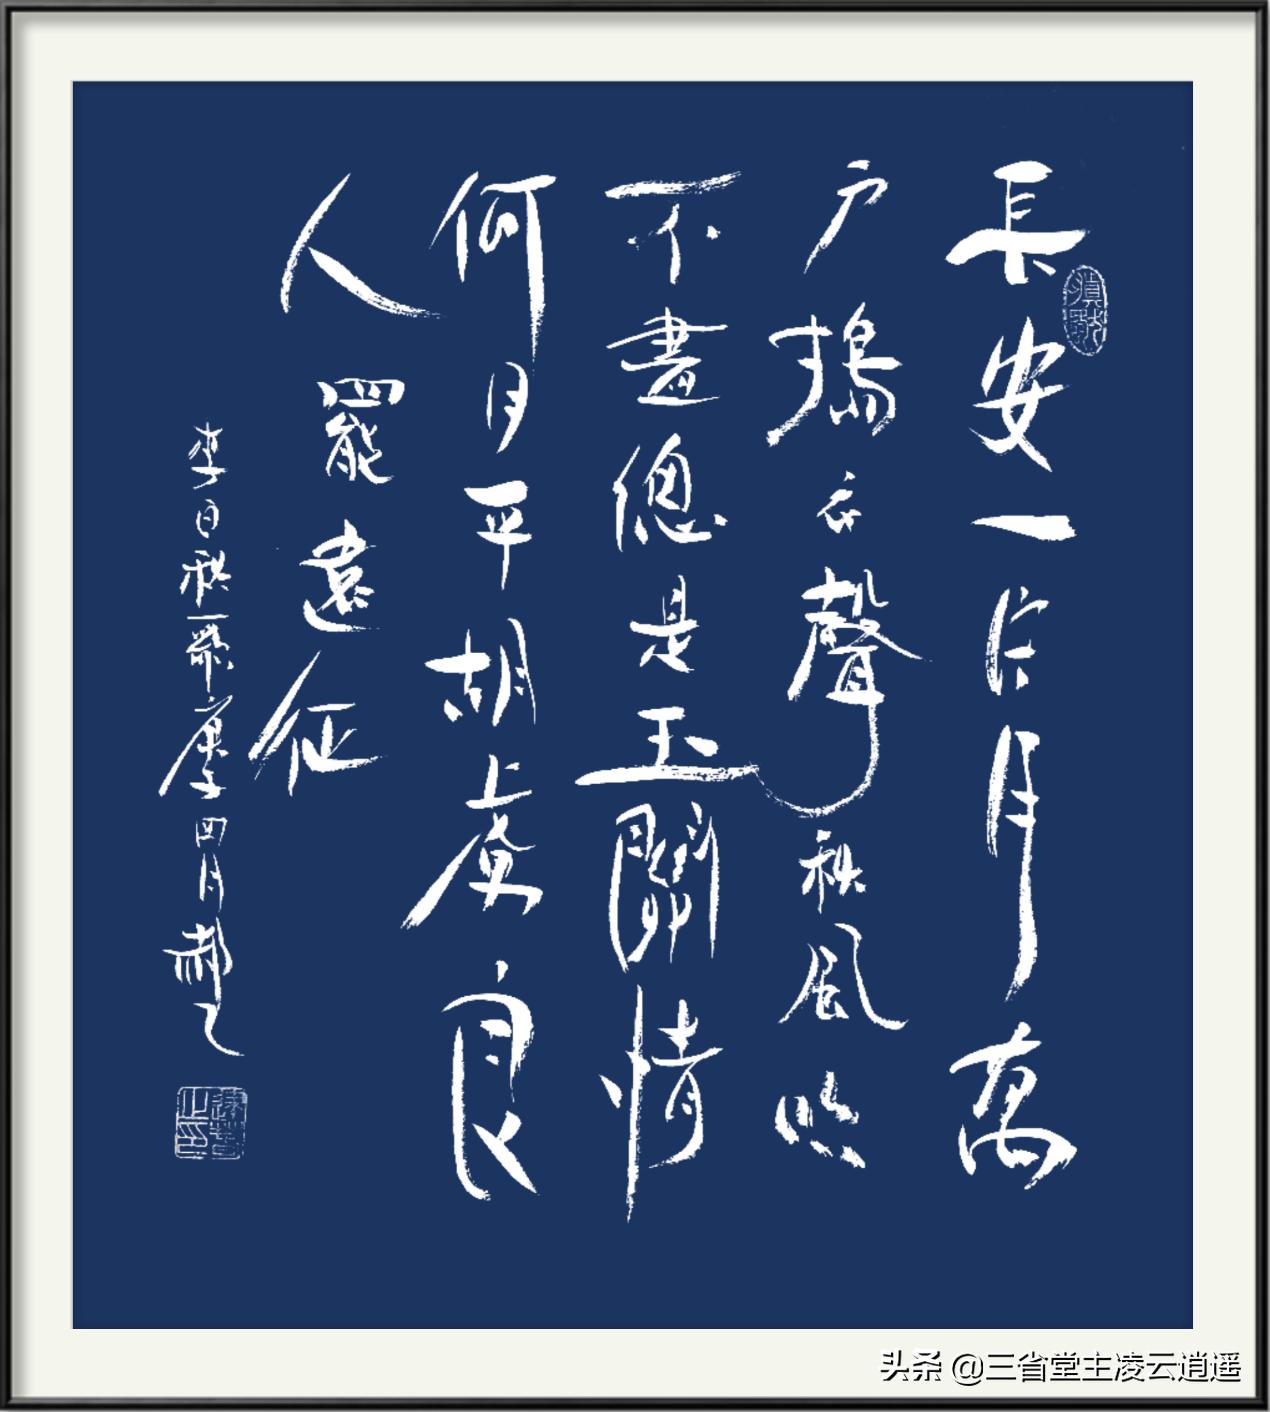 長安一片月萬
户搗衣聲秋風吹
不盡總是玉關情
何日平胡虜良
人罷遠征
李白秋歌庚子四月
头条 @三省堂主凌云逍遥